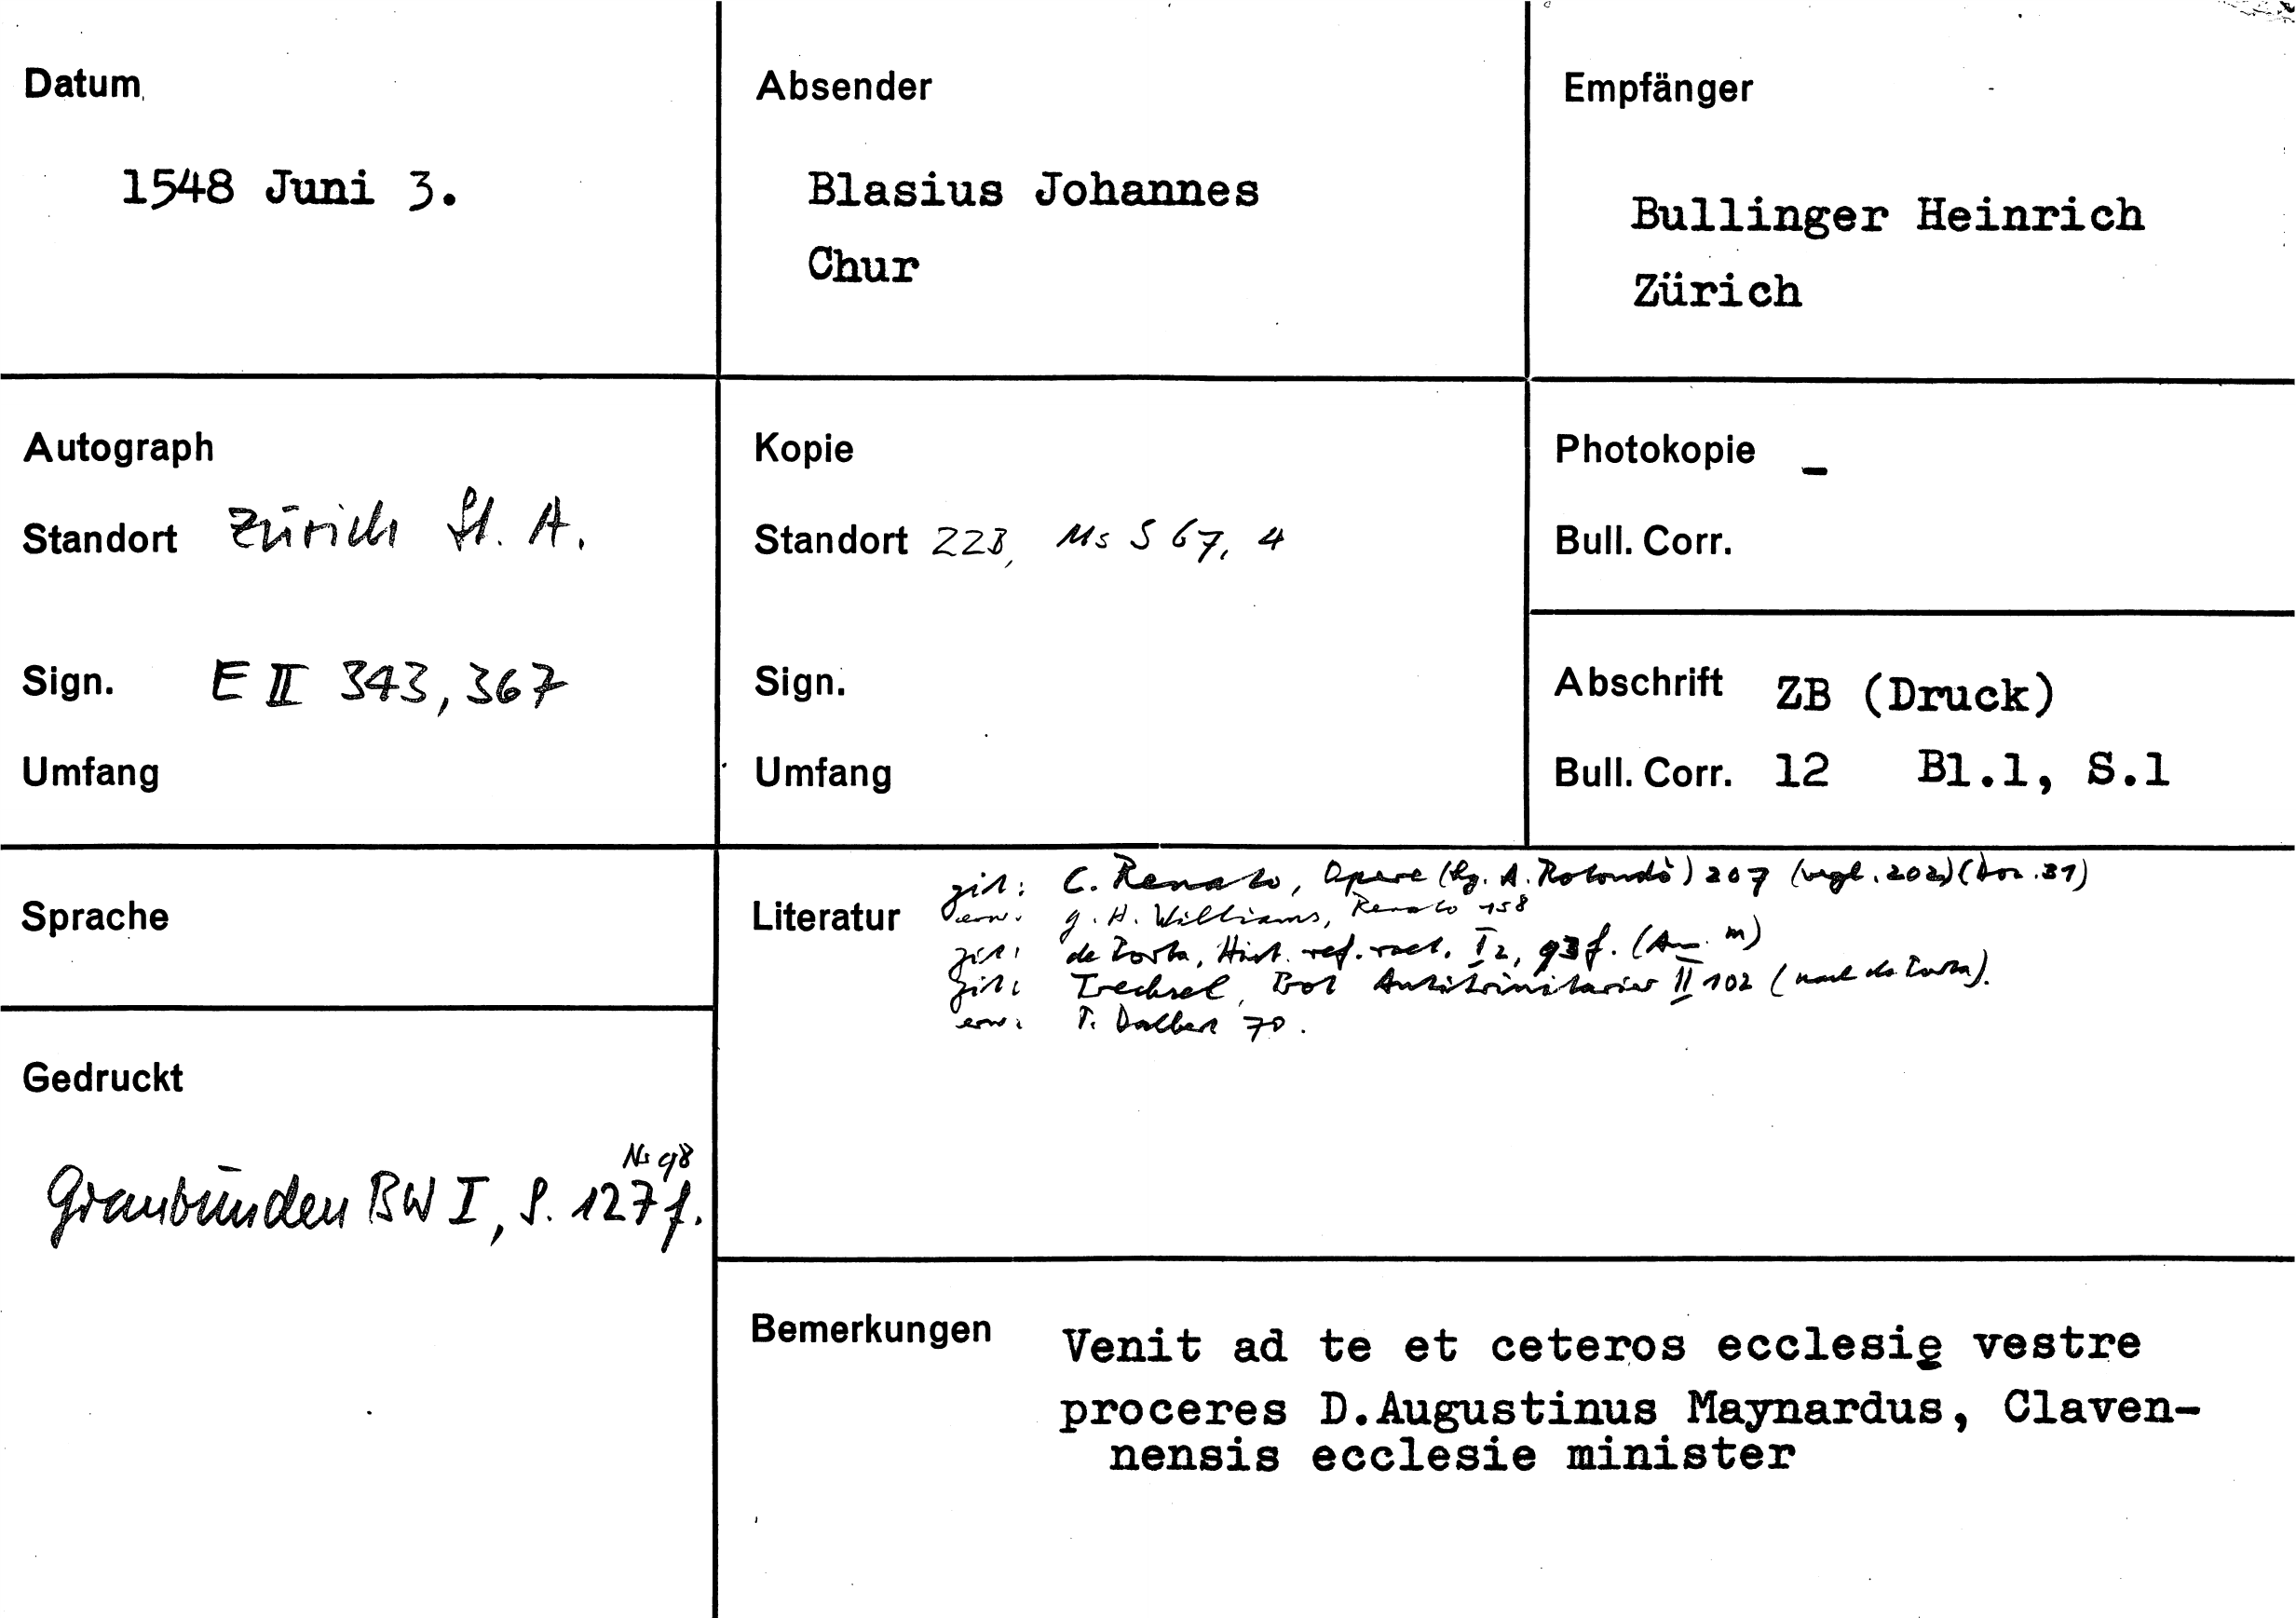 Datum
1548 Juni 3.
Absender
Blasius Johannes
Chur
Empfänger
Bullinger Heinrich
Zürich
Autograph
Standort Zürich St. A.
Sign. E II 343, 367
Umfang
Kopie
Standort ZZB, Ms S 67, 4
Sign.
Umfang
Photokopie -
Bull. Corr.
Abschrift ZB (Druck)
Bull. Corr. 12 Bl.1, S.1
Sprache
Gedruckt
Nr 98
Graubünden BW I, S. 127 f.
Literatur
zit: C. Renato, Opere (hg. A. Rotondò) 207 (vgl. 202)
erw: G. H. Williams, Renato 158
zit: de Porta, Hist. ref. raet. I 2, 93 f. (Anm. m)
zit: Trechsel, Prot Antitrinitarier II 102 (nach de Porta).
erw: T. Dalbert 70.
Bemerkungen
Venit ad te et ceteros ecclesię vestre
proceres D.Augustinus Maynardus, Claven-
nensis ecclesie minister